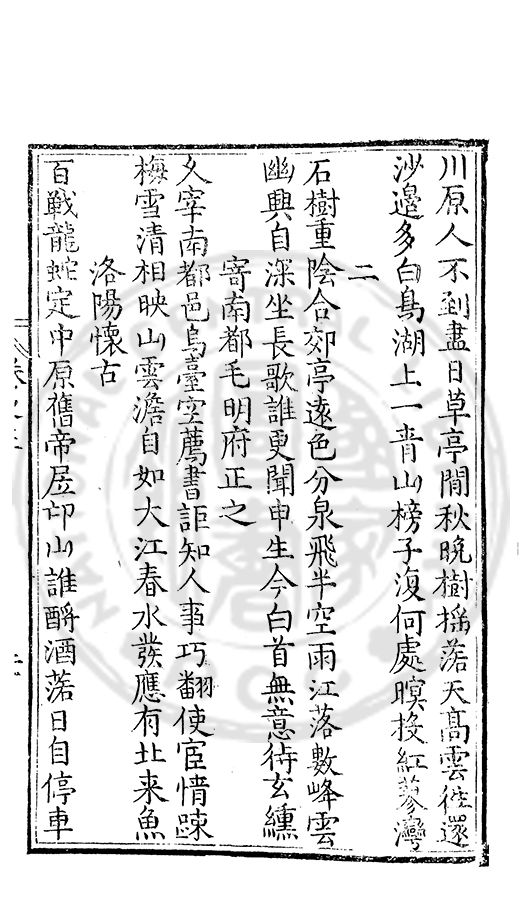 川原人不到盡日草亭閒秋晚樹揺落天髙雲徃還
沙邉多白鳥湖上一青山榜子復何處暝投紅蓼灣
二
石樹重陰合郊亭逺色分泉飛半空雨江落數峰雲
幽興自深坐長歌誰更聞申生今白首無意待玄纁
寄南都毛明府正之
久宰南都邑烏臺空薦書詎知人事巧翻使宦情踈
梅雪清相映山雲澹自如大江春水發應有北来魚
洛陽懷古
百戰龍蛇定中原舊帝居邙山誰酹酒落日自停車
卷之三